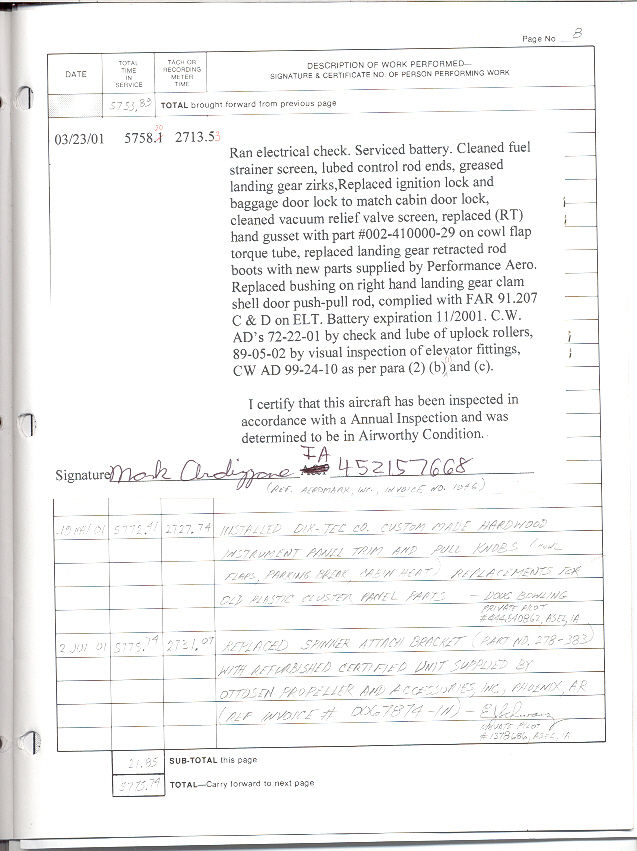 Page No 8
DATE
TOTAL TIME IN SERVICE
TACH OR RECORDING METER TIME
DESCRIPTION OF WORK PERFORMED—
SIGNATURE & CERTIFICATE NO. OF PERSON PERFORMING WORK
5753.89 TOTAL brought forward from previous page
03/23/01 5758.1 2713.53
Ran electrical check. Serviced battery. Cleaned fuel
strainer screen, lubed control rod ends, greased
landing gear zirks,Replaced ignition lock and
baggage door lock to match cabin door lock,
cleaned vacuum relief valve screen, replaced (RT)
hand gusset with part #002-410000-29 on cowl flap
torque tube, replaced landing gear retracted rod
boots with new parts supplied by Performance Aero.
Replaced bushing on right hand landing gear clam
shell door push-pull rod, complied with FAR 91.207
C & D on ELT. Battery expiration 11/2001. C.W.
AD's 72-22-01 by check and lube of uplock rollers,
89-05-02 by visual inspection of elevator fittings,
CW AD 99-24-10 as per para (2) (b) and (c).
I certify that this aircraft has been inspected in
accordance with a Annual Inspection and was
determined to be in Airworthy Condition.
Signature Mark IA 452157668
(REF. AEROMARK, INC., INVOICE NO. 1046)
01 5772.41 2727.74 INSTALLED DIX-TEC CO. CUSTOM MADE HARDWOOD
INSTRUMENT PANEL TRIM AND PULL KNOBS (COWL
FLAPS, PARKING BREAK, CABIN HEAT) REPLACEMENTS FOR
OLD PLASTIC CLUSTER PANEL PARTS — DOUG BOWLING
PRIVATE PILOT
ASEL, IA
2 01 5775.74 2731.07 REPLACED SPINNER ATTACH BRACKET (PART NO. 278-383)
WITH REFURBISHED CERTIFIED UNIT SUPPLIED BY
OTTOSEN PROPELLER AND ACCESSORIES, INC., PHOENIX, AR
(REF INVOICE # 0067874-IN) —
PRIVATE PILOT
#1378686, ASEL, IA
21.85 SUB-TOTAL this page
5775.74 TOTAL—Carry forward to next page